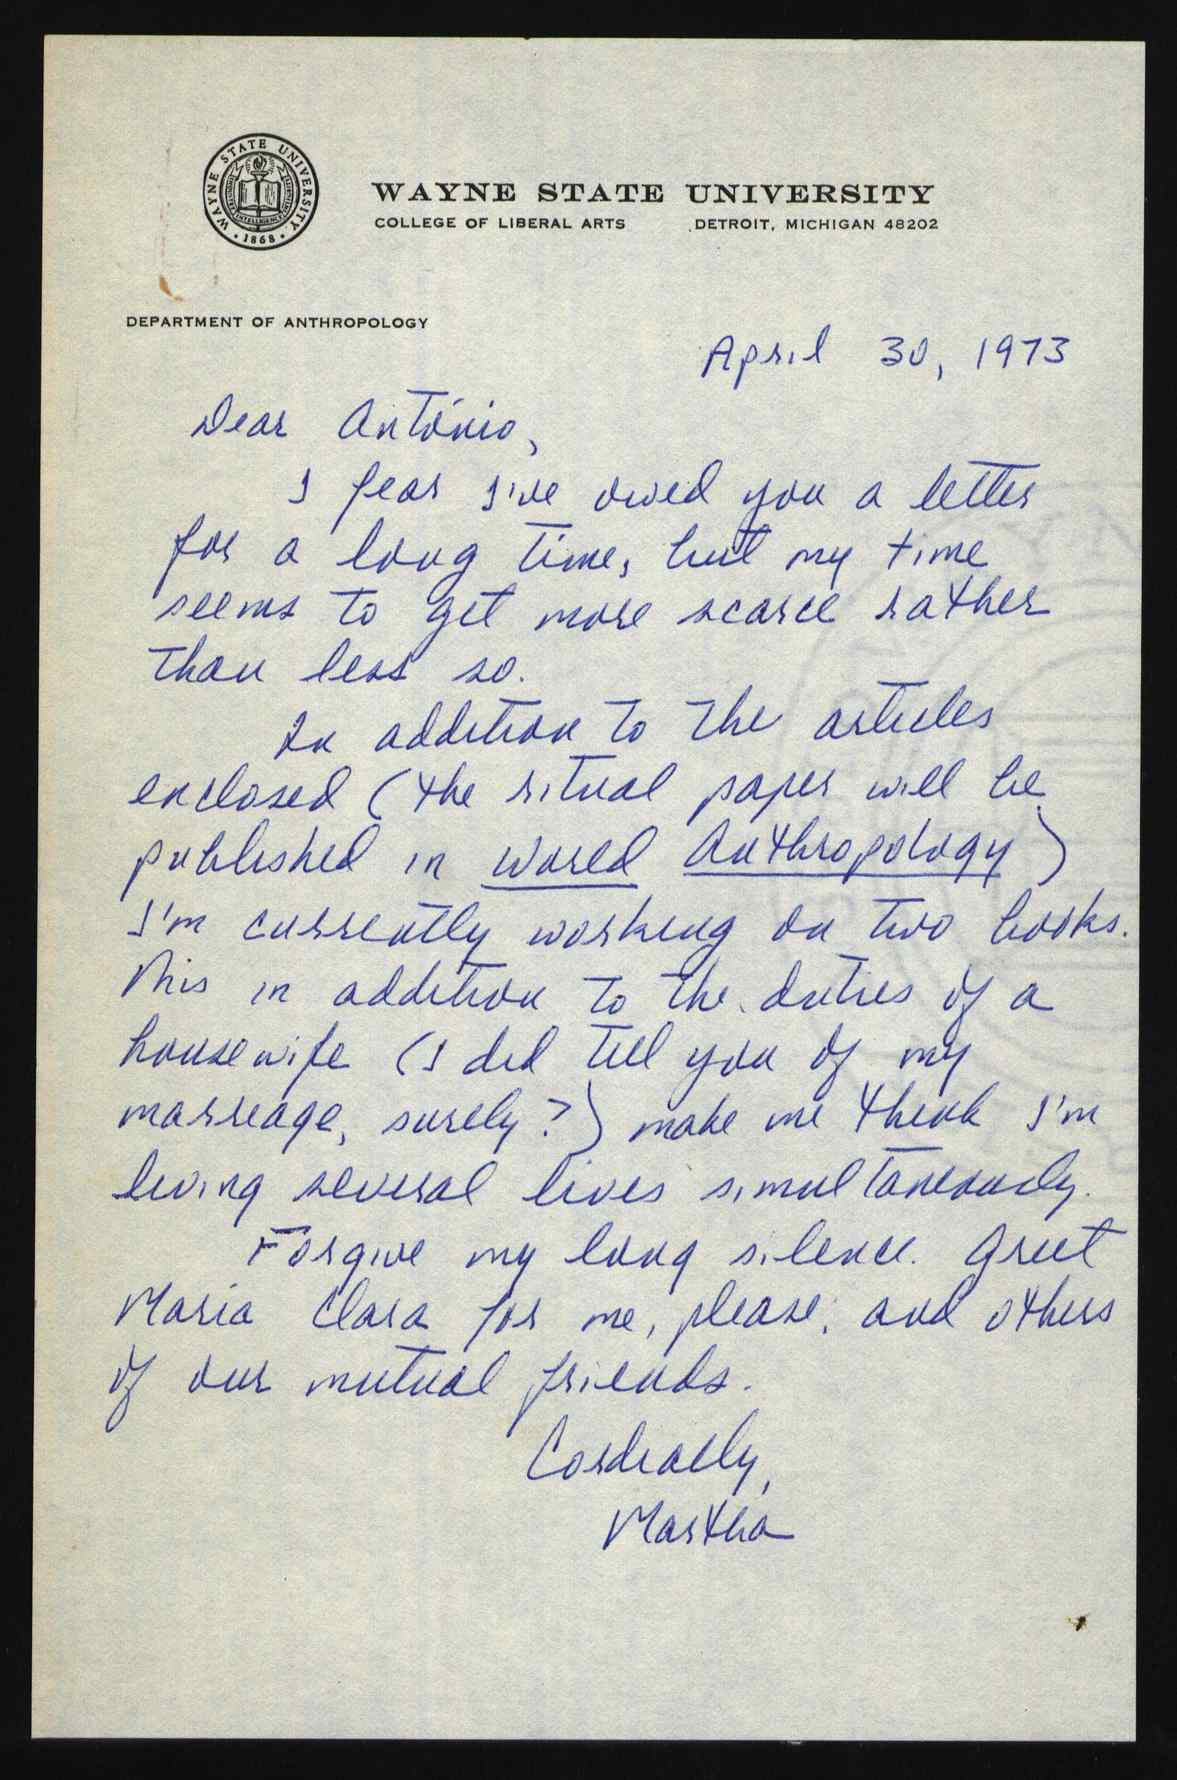 WAYNE STATE UNIVERSITY
1868
WAYNE STATE UNIVERSITY
COLLEGE OF LIBERAL ARTS DETROIT, MICHIGAN 48202
DEPARTMENT OF ANTHROPOLOGY
April 30, 1973
Dear António,
I fear I've owed you a letter
for a long time, but my time
seems to get more scarce rather
than less so.
In addition to the articles
enclosed (the ritual paper will be
published in World Anthropology)
I'm currently working on two books.
This in addition to the duties of a
housewife (I did tell you of my
marriage, surely?) make me think I'm
living several lives simultaneously.
Forgive my long silence. Greet
Maria Clara for me, please, and others
of our mutual friends.
Cordially,
Martha